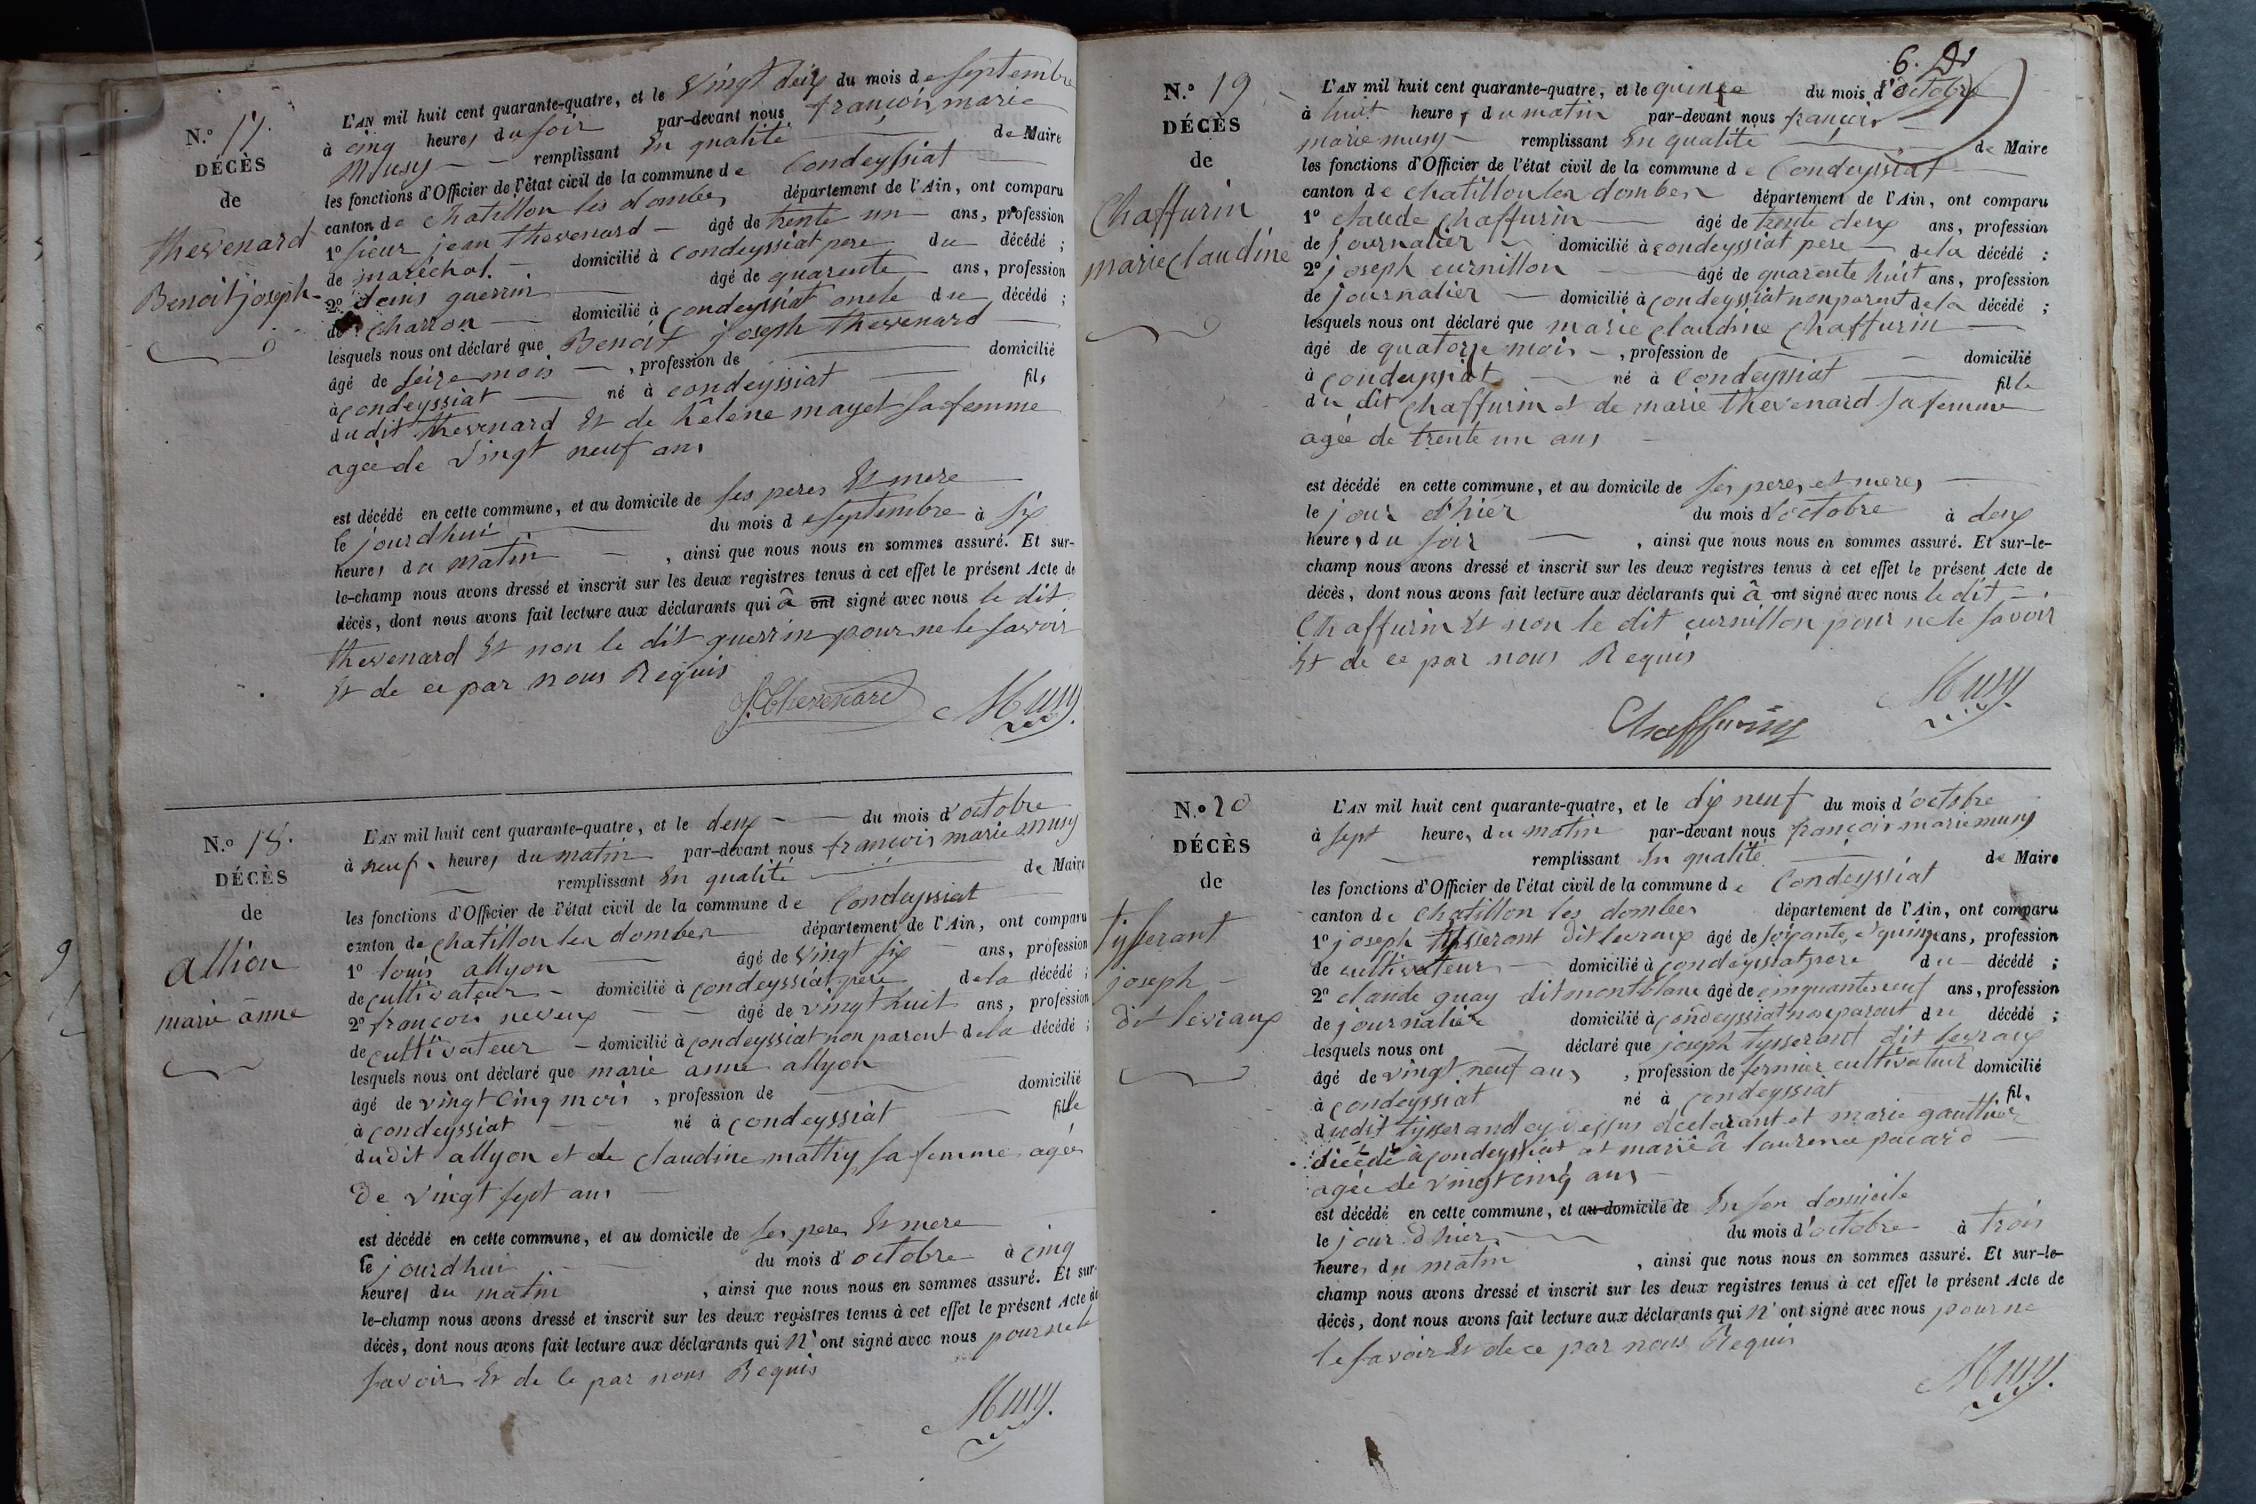 N.o 17.
DÉCÈS
de
thevenard
Benoit joseph
L'AN mil huit cent quarante-quatre, et le vingt deux du mois de septembre
à cinq heures du soir par-devant nous françois marie
Musy remplissant En qualité de Maire
les fonctions d'Officier de l'état civil de la commune de Condeyssiat
canton de chatillon les dombes département de l'Ain, ont comparu
1o sieur jean thevenard âgé de trente un ans, profession
de maréchal. domicilié à condeyssiat pere du décédé ;
2o denis guerrin âgé de quarente ans, profession
de charron domicilié à condeyssiat oncle du décédé ;
lesquels nous ont déclaré que Benoit joseph thevenard
âgé de seize mois, profession de domicilié
à condeyssiat né à condeyssiat fils
dudit thevenard Et de hêlene mayet sa femme
agée de vingt neuf ans
est décédé en cette commune, et au domicile de ses peres Et mere
le jourdhui du mois de septembre à six
heures du matin, ainsi que nous nous en sommes assuré. Et sur-
le-champ nous avons dressé et inscrit sur les deux registres tenus à cet effet le présent Acte de
décès, dont nous avons fait lecture aux déclarants qui â ont signé avec nous le dit
thevenard Et non le dit guerrin pour ne le savoir
Et de ce par nous Requis
J. Thevenard Musy
N.o 18.
DÉCÈS
de
allion
marie ânne
L'AN mil huit cent quarante-quatre, et le deux du mois d'octobre
à neuf heures du matin par-devant nous françois marie musy
remplissant En qualité de Maire
les fonctions d'Officier de l'état civil de la commune de Condeyssiat
canton de chatillon les dombes département de l'Ain, ont comparu
1o louis allyon âgé de vingt six ans, profession
de cultivateur domicilié à condeyssiat pere dela décédé ;
2o françois neveux âgé de vingt huit ans, profession
de cultivateur domicilié à condeyssiat non parent dela décédé ;
lesquels nous ont déclaré que marie anne allyon
âgé de vingt cinq mois, profession de domicilié
à condeyssiat né à condeyssiat fille
dudit allyon et de claudine mathy sa femme agée
de vingt sept ans
est décédé en cette commune, et au domicile de ses peres Et mere
le jourdhui du mois d'octobre à cinq
heures du matin, ainsi que nous nous en sommes assuré. Et sur-
le-champ nous avons dressé et inscrit sur les deux registres tenus à cet effet le présent Acte de
décès, dont nous avons fait lecture aux déclarants qui N'ont signé avec nous pour ne le
savoir Et de ce par nous Requis
Musy.
6.
N.o 19
DÉCÈS
de
Chaffurin
marie claudine
L'AN mil huit cent quarante-quatre, et le quinze du mois d'octobre
à huit heures du matin par-devant nous françois
marie musy remplissant En qualité de Maire
les fonctions d'Officier de l'état civil de la commune de Condeyssiat
canton de chatillon les dombes département de l'Ain, ont comparu
1o claude chaffurin âgé de trente deux ans, profession
de journalier domicilié à condeyssiat pere dela décédé ;
2o joseph curnillon âgé de quarente huit ans, profession
de journalier domicilié à condeyssiat non parent dela décédé ;
lesquels nous ont déclaré que marie claudine chaffurin
âgé de quatorze mois, profession de domicilié
à condeyssiat né à Condeyssiat fille
du dit chaffurin et de marie thevenard sa femme
agée de trente un ans
est décédé en cette commune, et au domicile de ses peres et meres
le jour d'hier du mois d'octobre à deux
heures du soir, ainsi que nous nous en sommes assuré. Et sur-le-
champ nous avons dressé et inscrit sur les deux registres tenus à cet effet le présent Acte de
décès, dont nous avons fait lecture aux déclarants qui â ont signé avec nous le dit
Chaffurin Et non le dit curnillon pour ne le savoir
Et de ce par nous Requis
Musy.
Chaffurin
N.o 20
DÉCÈS
de
tysserant
joseph
dit levraux
L'AN mil huit cent quarante-quatre, et le dix neuf du mois d'octobre
à sept heures du matin par-devant nous françois marie musy
remplissant En qualité de Maire
les fonctions d'Officier de l'état civil de la commune de Condeyssiat
canton de chatillon les dombes département de l'Ain, ont comparu
1o joseph tysserant dit levraux âgé de soixante et quinze ans, profession
de cultivateur domicilié à condeyssiat pere du décédé ;
2o claude guay dit montblanc âgé de cinquante neuf ans, profession
de journalier domicilié à condeyssiat non parent du décédé ;
lesquels nous ont déclaré que joseph tysserant dit levraux
âgé de vingt neuf ans, profession de fermier cultivateur domicilié
à condeyssiat né à condeyssiat fils
dudit tysserand cy dessus declarant et marie gauthier
décédé à condeyssiat et marié â laurence pacard
agée de vingt cinq ans
est décédé en cette commune, et au domicile de En son domicile
le jour d'hier du mois d'octobre à trois
heures du matin, ainsi que nous nous en sommes assuré. Et sur-le-
champ nous avons dressé et inscrit sur les deux registres tenus à cet effet le présent Acte de
décès, dont nous avons fait lecture aux déclarants qui N'ont signé avec nous pour ne
le savoir Et de ce par nous Requis
Musy.